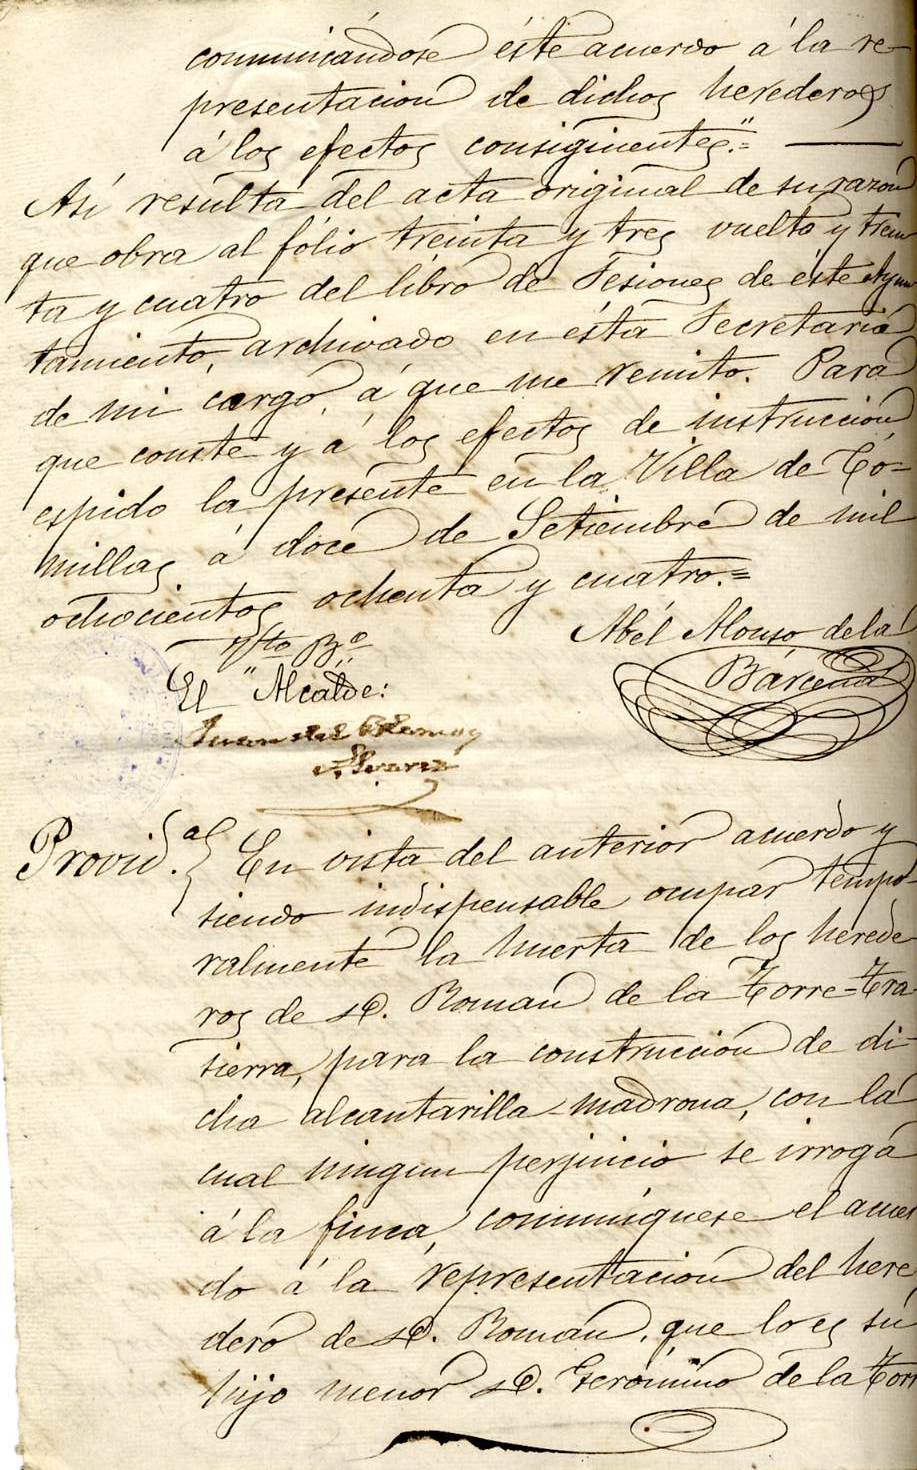 comunicándose éste acuerdo á la re-
presentacion de dichos herederos
á los efectos consiguientes."=
Así resulta del acta original de su razon
que obra al fólio treinta y tres vuelto y trein
ta y cuatro del libro de Sesiones de éste Ayun
tamiento, archivado en ésta Secretaria
de mi cargo, á que me remito. Para
que conste y á los efectos de instruccion
espido la presente en la Villa de Có=
millas á doce de Setiembre de mil
ochocientos ochenta y cuatro.=
Vto Bo
Abél Alonso de la
Bárcena
El Alcalde:
Juan del
Provid.a { En vista del anterior acuerdo y
siendo indispensable ocupar tempo-
ralmente la huerta de los herede-
ros de D. Roman de la Torre=Tra-
sierra, para la construccion de di-
cha alcantarilla-madrona, con la
cual ningun perjuicio se irroga
á la finca, comuníquese el acuer
do á la representacion del here
dero de D. Roman, que lo es su
hijo menor D. Gerónimo de la Torr